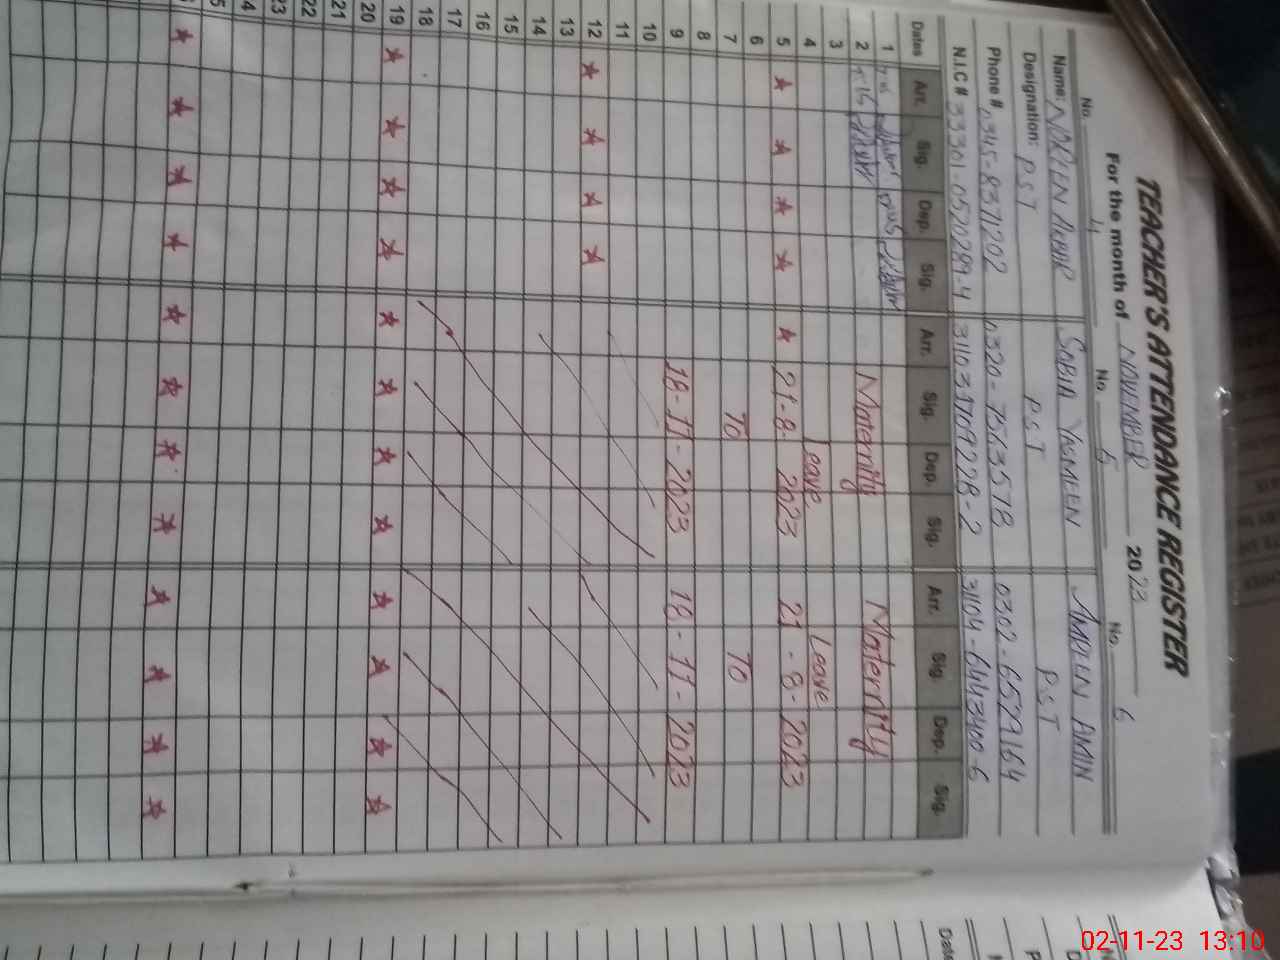 TEACHER'S ATTENDANCE REGISTER
For the month of NOVEMBER 2023
No. 4 No. 5 No. 6
Name: NOREEN AKBAR SOBIA YASMEEN AMREEN AMIN
Designation: PST PST PST
Phone # 0345-8371202 0320-7563578 0302-6529164
N.I.C # 33301-0520289-4 31103-9709228-2 31104-6443400-6
Dates Arr. Sig. Dep. Sig. Arr. Sig. Dep. Sig. Arr. Sig. Dep. Sig.
1
2 Maternity Maternity
3
4 Leave Leave
5 21-8-2023 21-8-2023
6
7 To To
8
9 18-11-2023 18-11-2023
10
11
12
13
14
15
16
17
18
19
20
21
22
23
24
25
02-11-23 13:10